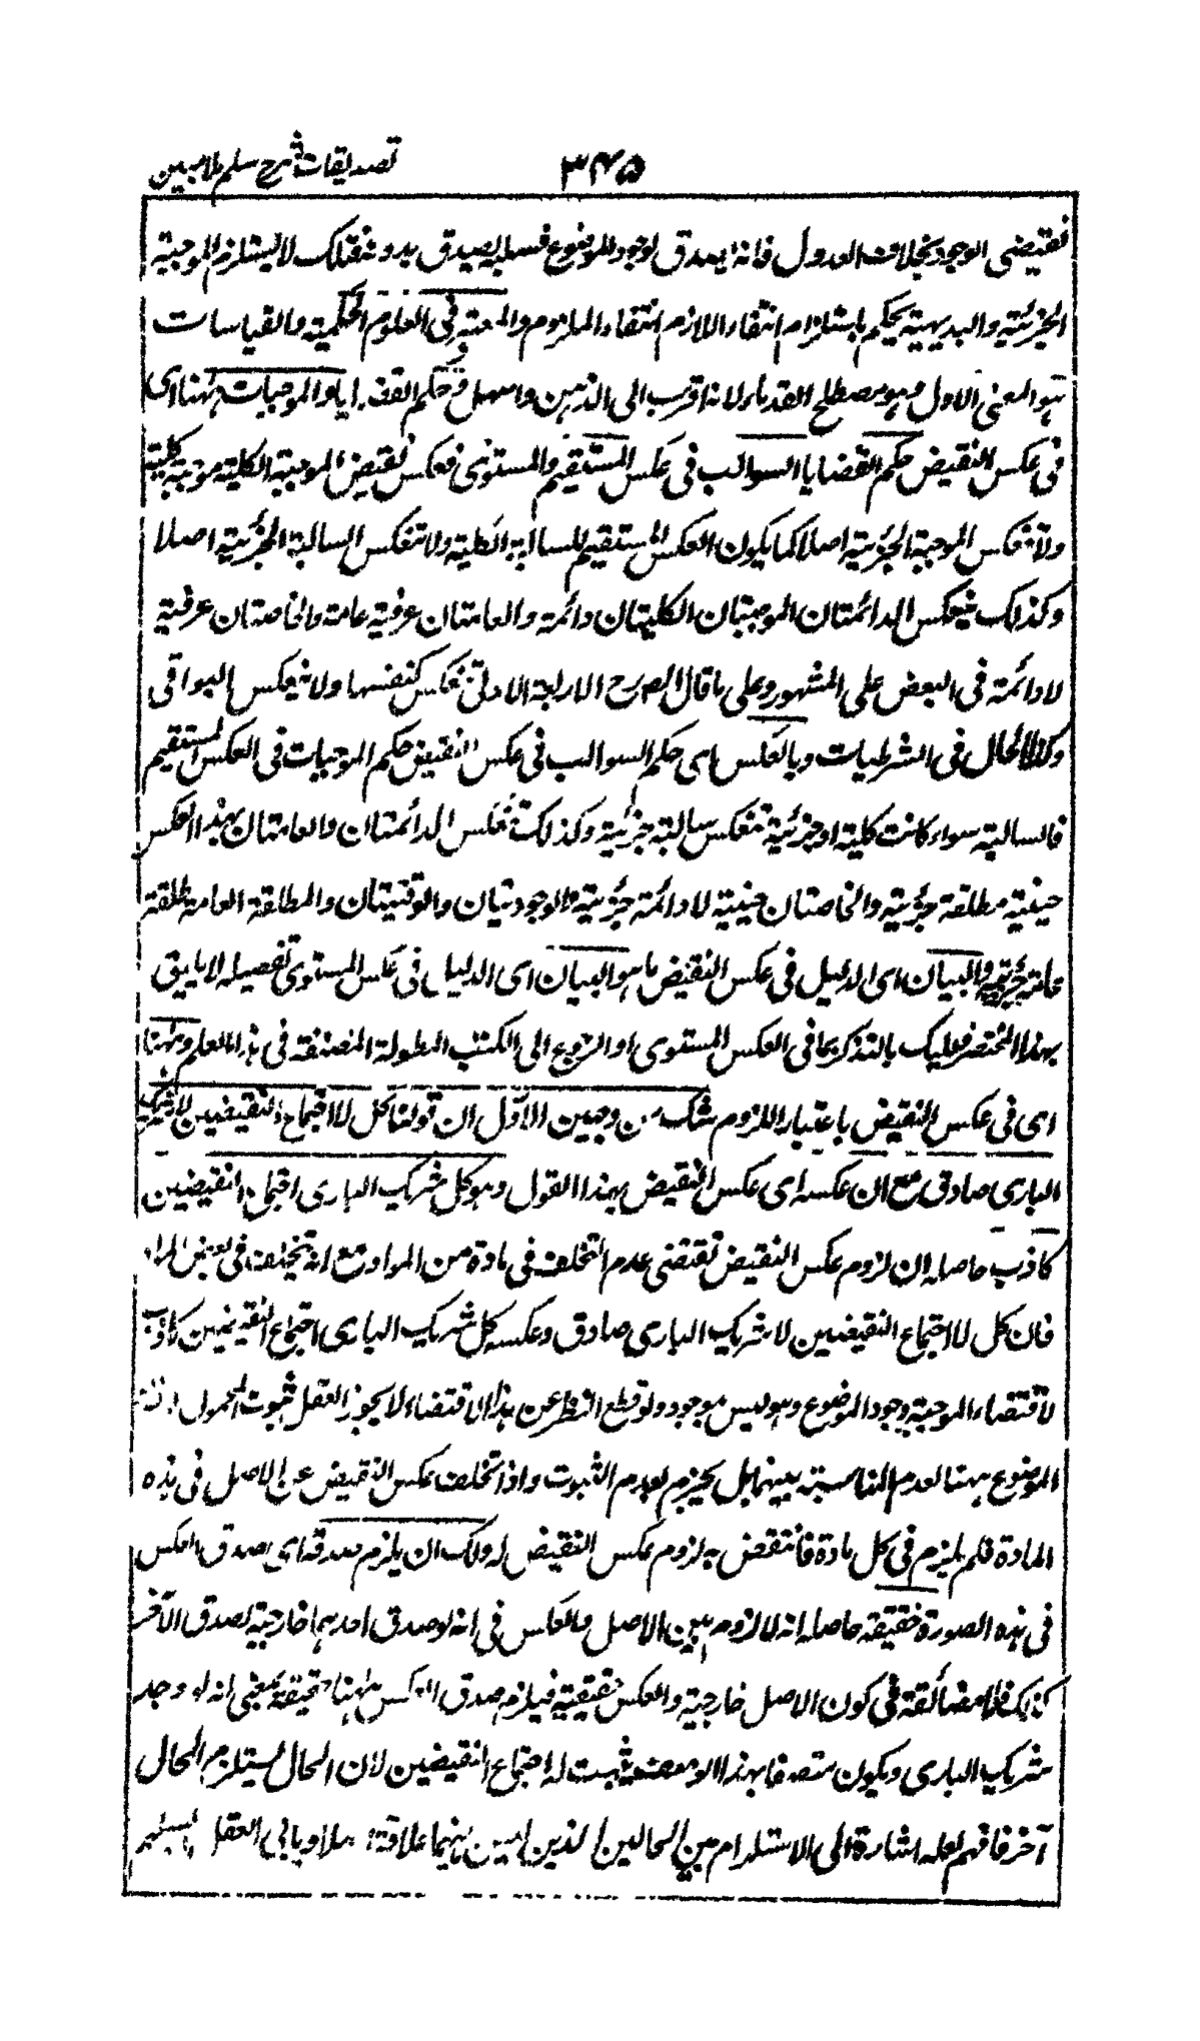 تصدیقات شرح سلم ملا مبین ۳۴۵
فيقتضي الوجود بخلاف العدول فانه يصدق لوجود الموضوع فسلبه يصدق بدونه فتلك لا يستلزم الموجبة
الجزئية والبديهية يحكم باستلزام انتفاء اللازم انتفاء الملزوم والمعتبر في العلوم الحكمية والقياسات
هو المعنى الاول وهو مصطلح القدماء لانه اقرب الى الذهن واسهل وحكم الموجبات ههنا اى
فى عكس النقيض حكم القضايا السوالب فى عكس المستقيم والمستوى فعكس نقيض الموجبة الكلية موجبة كلية
ولا تنعكس الموجبة الجزئية اصلا كما يكون العكس المستقيم للسالبة الكلية ولا تنعكس السالبة الجزئية اصلا
وكذلك ينعكس الدائمتان الموجبتان الكليتان دائمة والعامتان عرفية عامة والخاصتان عرفية
لا دائمة فى البعض على المشهور وعلى ما قال المصرح الاربعة الاولى تنعكس كنفسها ولا ينعكس البواقى
وكذا الحال فى الشرطيات وبالعكس اى حكم السوالب فى عكس النقيض حكم الموجبات فى العكس المستقيم
فالسالبة سواء كانت كلية او جزئية تنعكس سالبة جزئية وكذلك تنعكس الدائمتان والعامتان بهذا العكس
حينية مطلقة جزئية والخاصتان حينية لا دائمة جزئية والوجوديتان والوقتيتان والمطلقة العامة مطلقة
عامة جزئية والبيان اى الدليل فى عكس النقيض ما هو البيان اى الدليل فى عكس المستوى تفصيله لا يليق
بهذا المختصر فعليك بالتذكر بما فى العكس المستوى او الرجوع الى الكتب المطولة المصنفة فى هذا العلم وههنا
اى فى عكس النقيض باعتبار اللزوم شك من وجهين الاول ان قولنا كل لا اجتماع النقيضين لا شريك
البارى صادق مع ان عكسه اى عكس النقيض بهذا القول وهو كل شريك البارى اجتماع النقيضين
كاذب حاصله ان لزوم عكس النقيض تقتضى عدم التخلف فى مادة من المواد مع انه تخلف فى بعض المواد
فان كل لا اجتماع النقيضين لا شريك البارى صادق وعكسه كل شريك البارى اجتماع النقيضين كاذب
لاقتضاء الموجبة وجود الموضوع وهو ليس بموجود ولو قطع النظر عن هذا الاقتضاء لا يجوز العقل ثبوت المحمول
الموضوع ههنا لعدم المناسبة بينهما بل يجزم بعدم الثبوت واذا تخلف عكس النقيض عن الاصل فى هذه
المادة فلم يلزم فى كل مادة فانتقض به لزوم عكس النقيض له ولك ان يلزم صدقه اى صدق العكس
فى هذه الصورة حقيقة حاصله انه لا لزوم بين الاصل والعكس فى انه لو صدق احدهما خارجية لصدق الآخر
كذلك فلا مضائقة فى كون الاصل خارجية والعكس حقيقية فيلزم صدق العكس ههنا حقيقة بمعنى انه لو وجد
شريك البارى ويكون متصفا بهذا الوصف يثبت له اجتماع النقيضين لان المحال يستلزم المحال
آخر فافهم لعله اشارة الى الاستلزام بين المحالين الذين ليس بينهما علاقة العقل